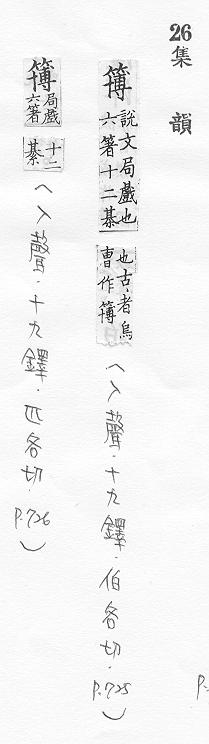 26
集韻
簙
說文局戲也
六箸十二棊
也古者烏
曹作簙
(入聲.十九鐸.伯各切.P.725)
簙
局戲
六箸
十二
棊
(入聲.十九鐸.匹各切.P.726)
P.